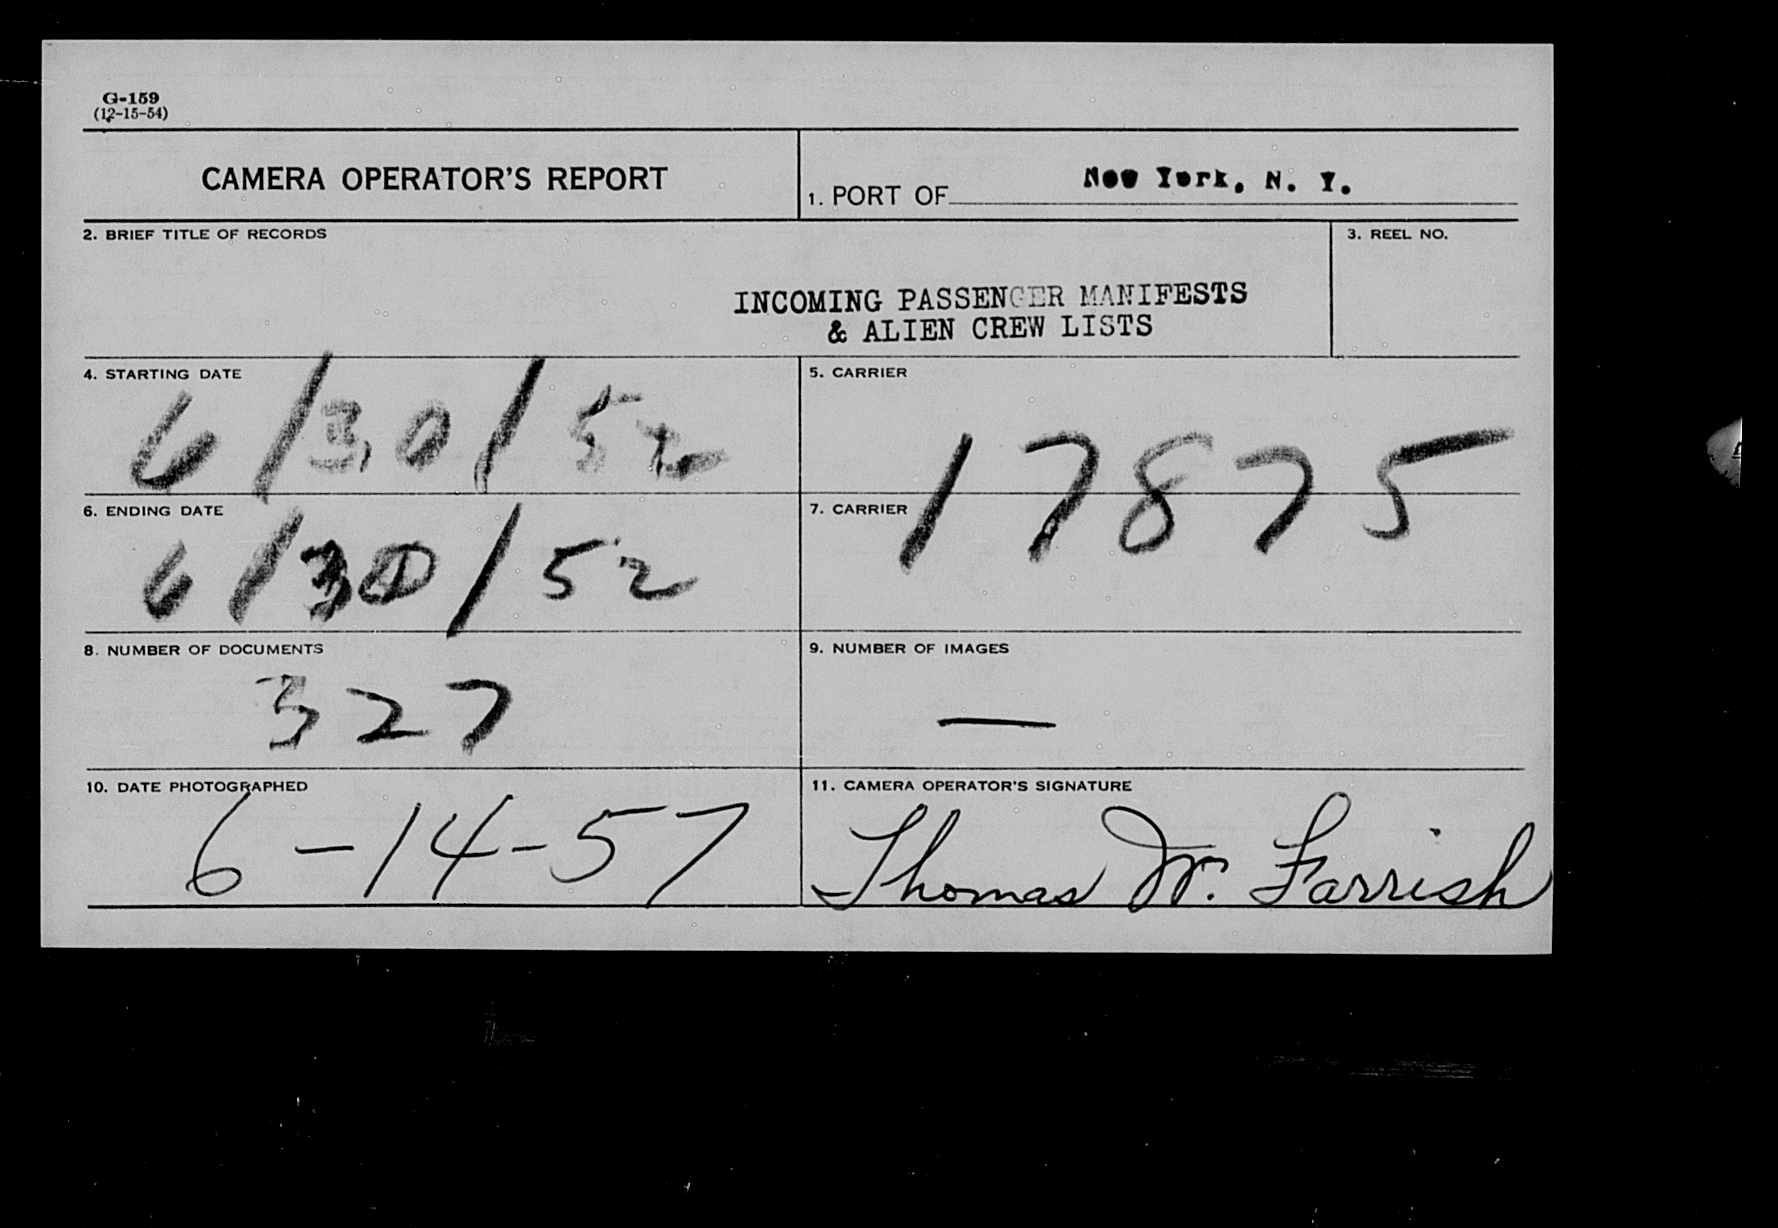 G-159
(12-15-54)
CAMERA OPERATOR'S REPORT
1. PORT OF New York, N. Y.
2. BRIEF TITLE OF RECORDS
3. REEL NO.
INCOMING PASSENGER MANIFESTS
& ALIEN CREW LISTS
4. STARTING DATE
6/30/52
5. CARRIER
17875
6. ENDING DATE
6/30/52
7. CARRIER
8. NUMBER OF DOCUMENTS
327
9. NUMBER OF IMAGES
—
10. DATE PHOTOGRAPHED
6-14-57
11. CAMERA OPERATOR'S SIGNATURE
Thomas W. Farrish